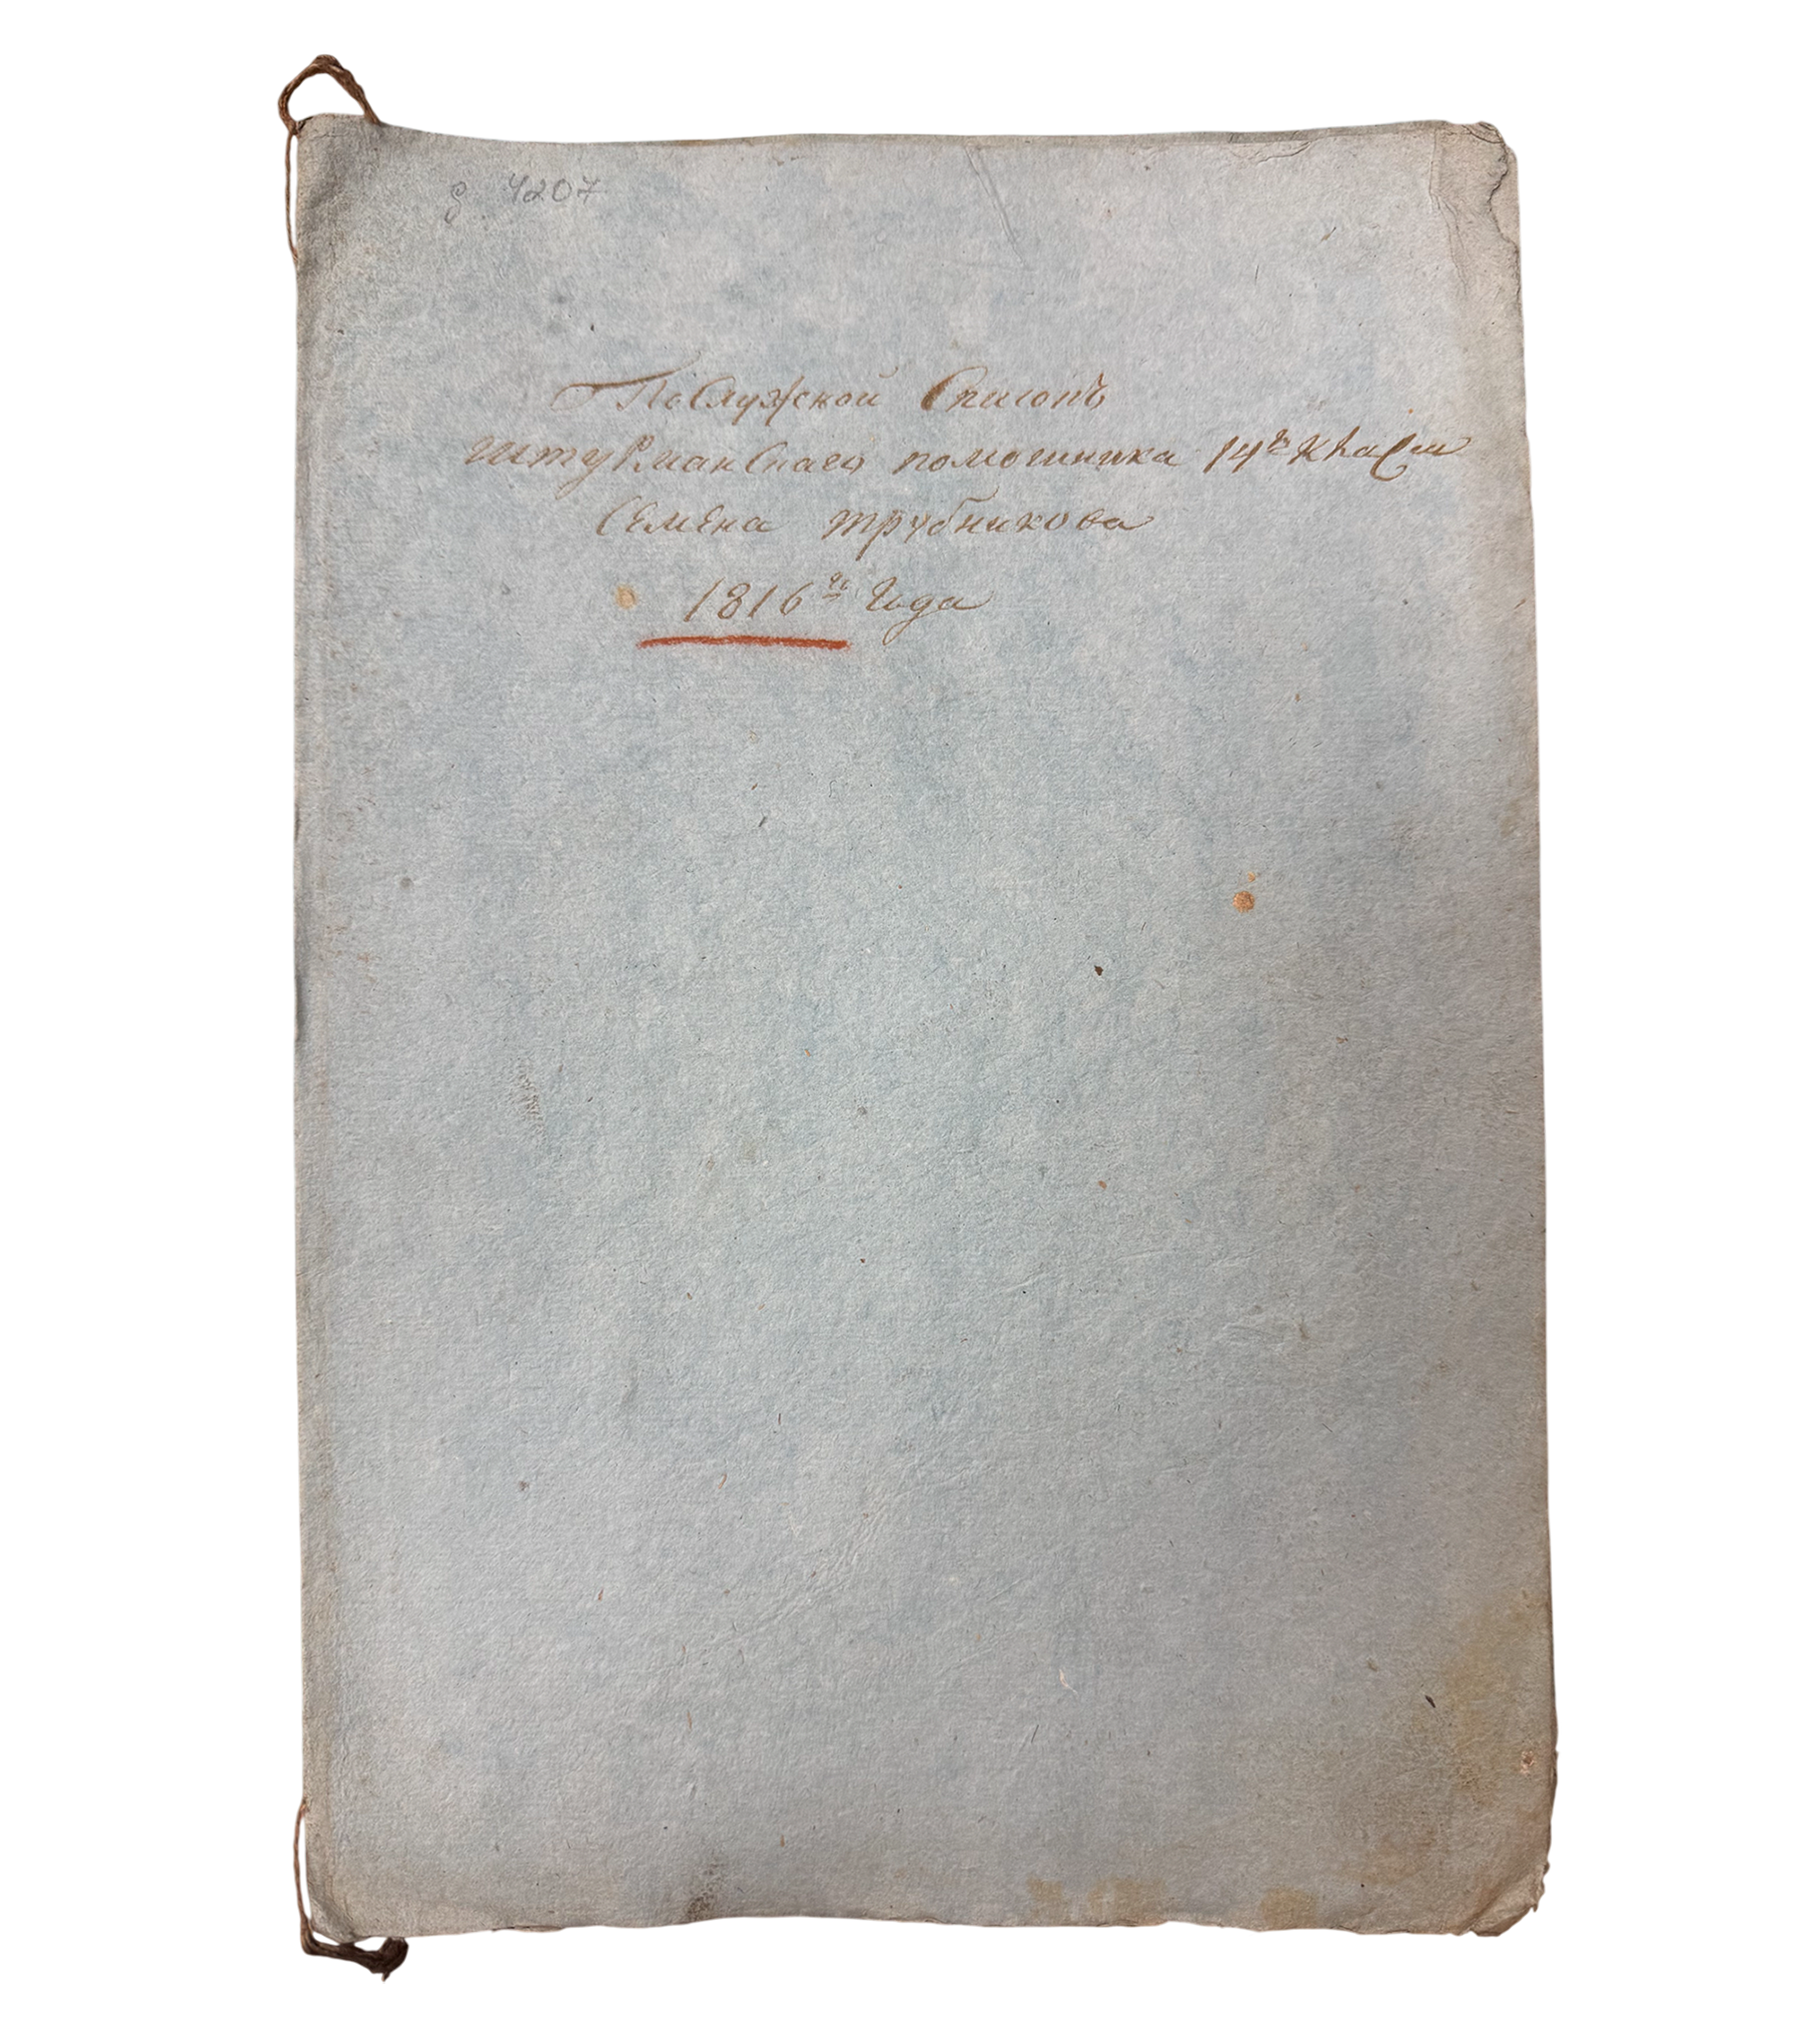 д. 4207
Послужной Списокъ
штурманскаго помошника 14го класса
Семена трубникова
1816го Года